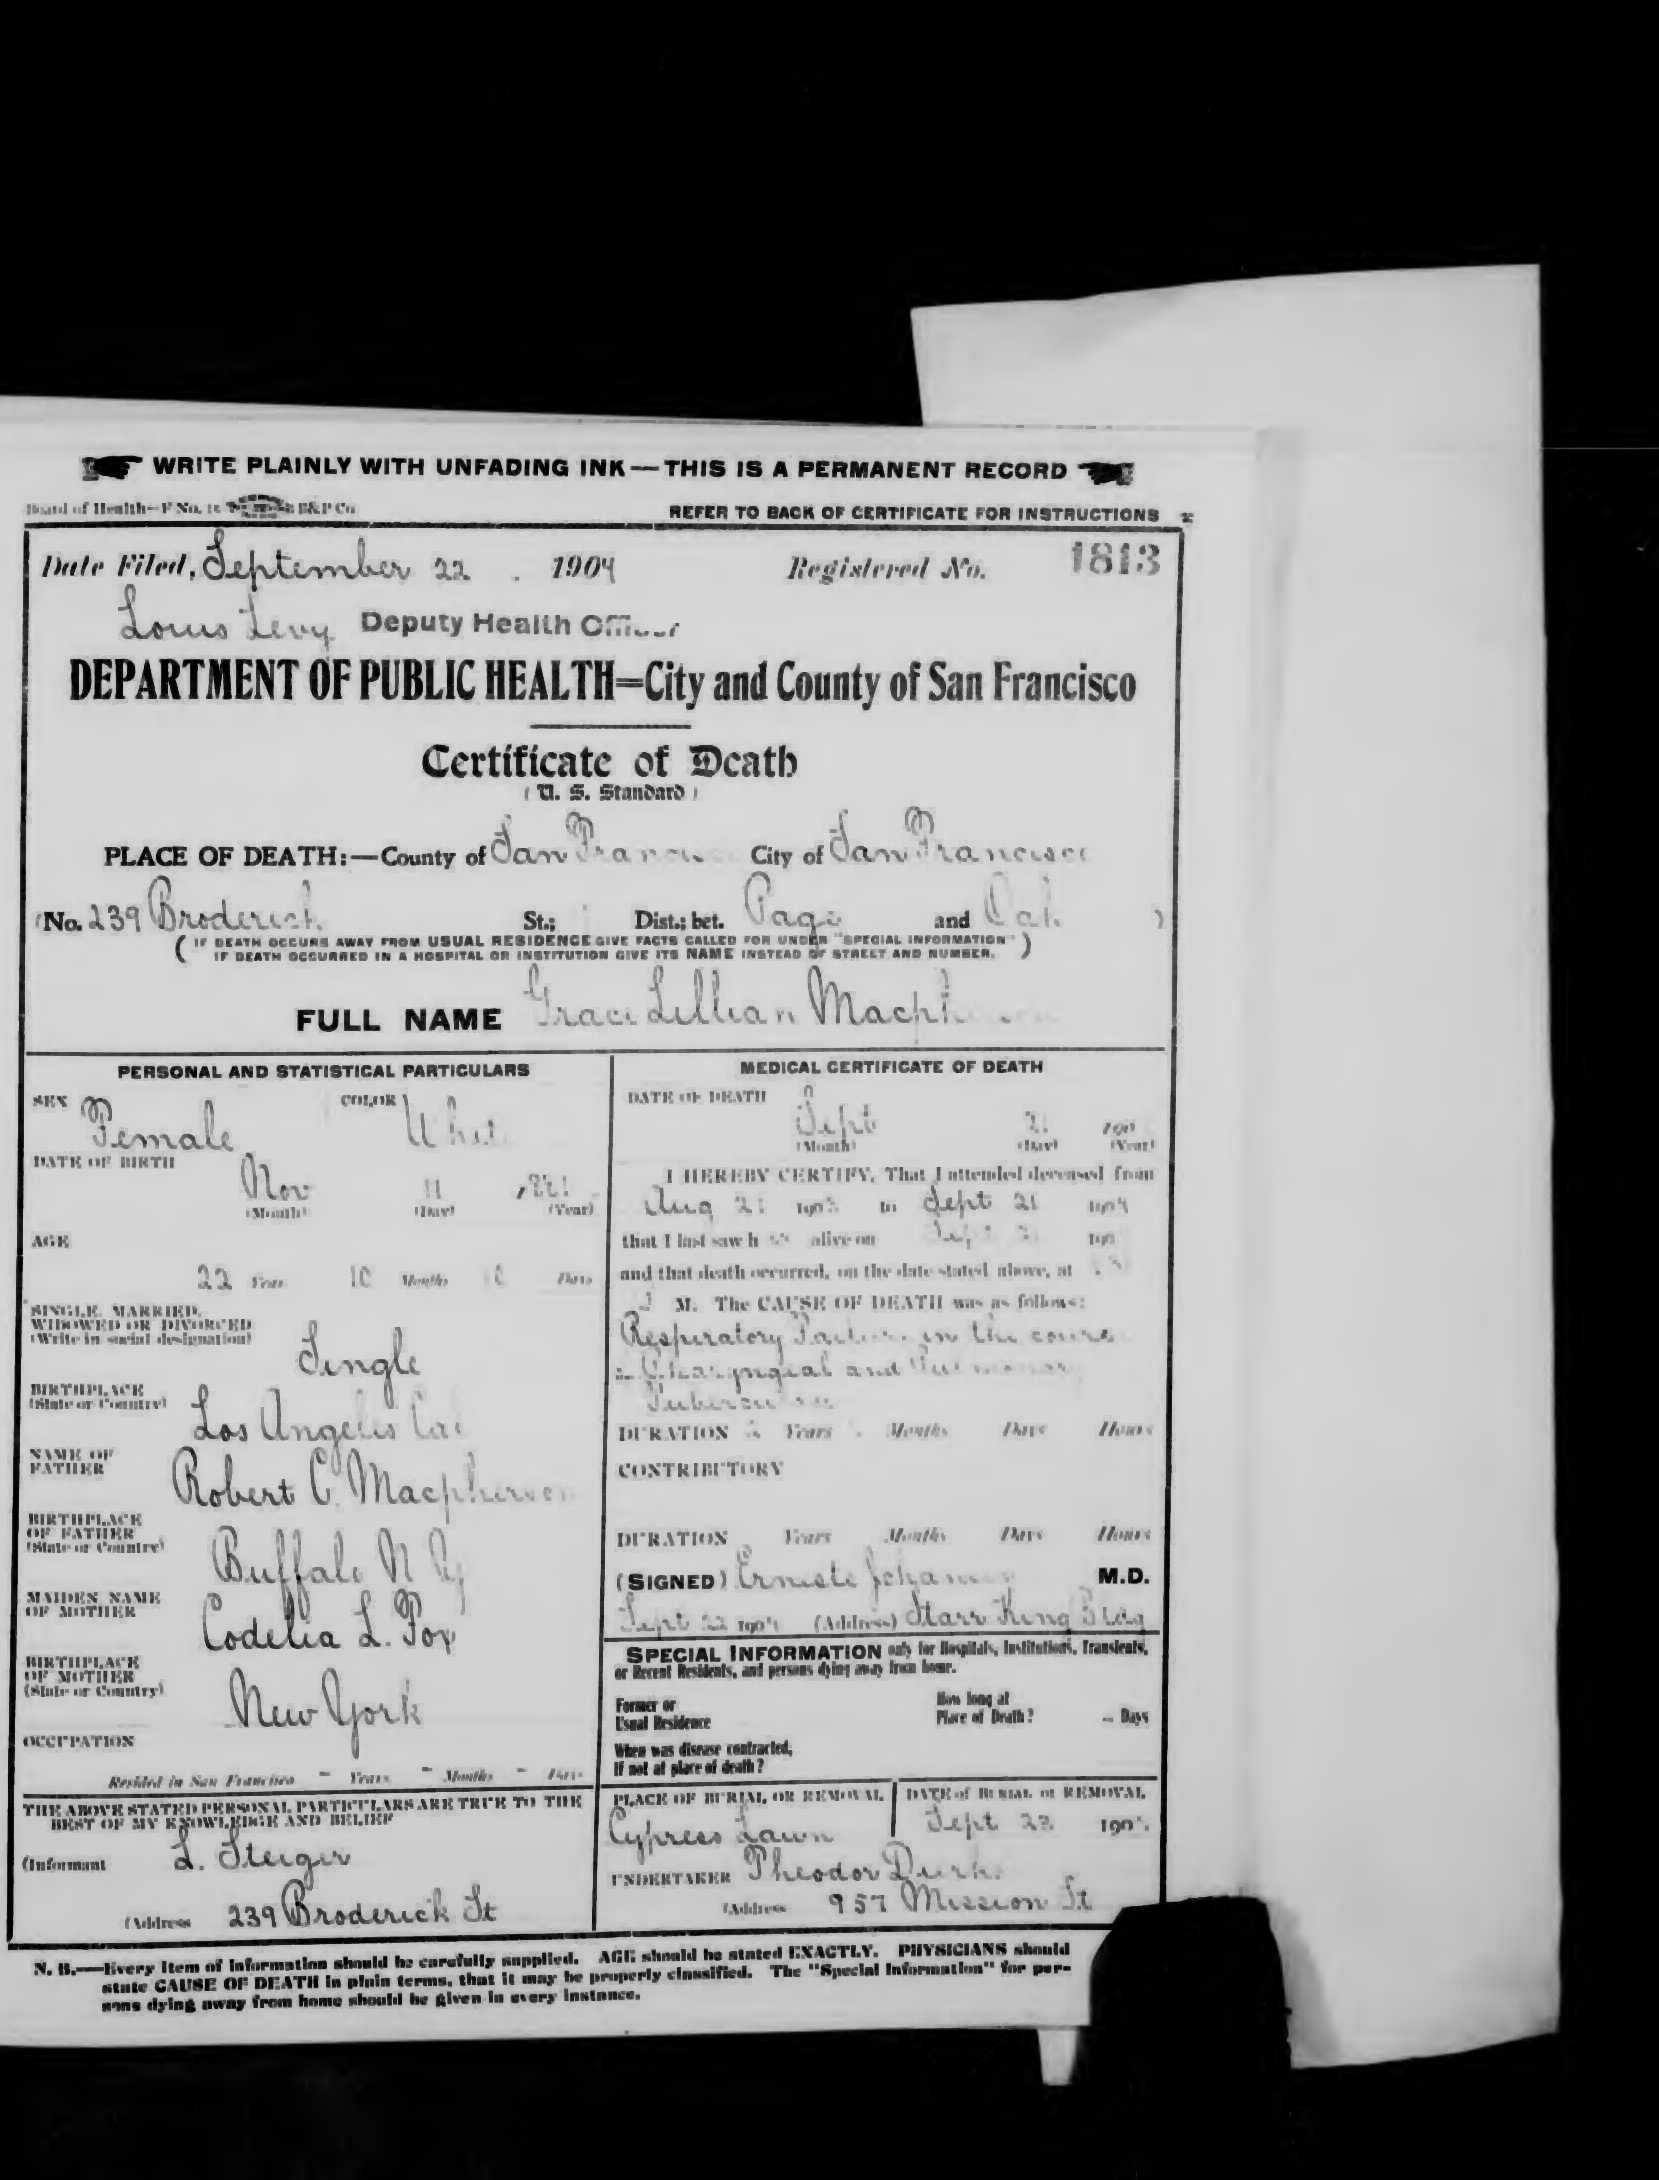 WRITE PLAINLY WITH UNFADING INK—THIS IS A PERMANENT RECORD
Board of Health—F No. B&P Co
REFER TO BACK OF CERTIFICATE FOR INSTRUCTIONS
Date Filed, September 22 . 1904 Registered No. 1813
Louis Levy Deputy Health Officer
DEPARTMENT OF PUBLIC HEALTH=City and County of San Francisco
Certificate of Death
(U. S. Standard)
PLACE OF DEATH:—County of San Francisco City of San Francisco
(No. 239 Broderick St.; Dist.; bet. Page and Oak )
(IF DEATH OCCURS AWAY FROM USUAL RESIDENCE GIVE FACTS CALLED FOR UNDER "SPECIAL INFORMATION"
IF DEATH OCCURRED IN A HOSPITAL OR INSTITUTION GIVE ITS NAME INSTEAD OF STREET AND NUMBER.)
FULL NAME Grace Lillian Macpherson
PERSONAL AND STATISTICAL PARTICULARS
SEX Female COLOR White
DATE OF BIRTH
Nov 11
(Month) (Day) (Year)
AGE
22 Years 10 Months 10 Days
SINGLE, MARRIED,
WIDOWED OR DIVORCED
(Write in social designation)
Single
BIRTHPLACE
(State or Country)
Los Angeles Cal
NAME OF
FATHER
Robert C. Macpherson
BIRTHPLACE
OF FATHER
(State or Country)
Buffalo N Y
MAIDEN NAME
OF MOTHER
Codelia L. Fox
BIRTHPLACE
OF MOTHER
(State or Country)
New York
OCCUPATION
Resided in San Francisco - Years - Months - Days
THE ABOVE STATED PERSONAL PARTICULARS ARE TRUE TO THE
BEST OF MY KNOWLEDGE AND BELIEF
(Informant L. Steiger
(Address 239 Broderick St
MEDICAL CERTIFICATE OF DEATH
DATE OF DEATH
Sept 21 190
(Month) (Day) (Year)
I HEREBY CERTIFY, That I attended deceased from
Aug 21 1903 to Sept 21 1904
that I last saw h alive on Sept 21 190
and that death occurred, on the date stated above, at
M. The CAUSE OF DEATH was as follows:
Respiratory Failure in the course
Pharyngial and Pulmonary
Tuberculosis
DURATION Years Months Days Hours
CONTRIBUTORY
DURATION Years Months Days Hours
(SIGNED) M.D.
Sept 22 1904 (Address) Starr King Bldg
SPECIAL INFORMATION only for Hospitals, Institutions, Transients,
or Recent Residents, and persons dying away from home.
Former or
Usual Residence
How long at
Place of Death? - Days
When was disease contracted,
If not at place of death?
PLACE OF BURIAL OR REMOVAL
Cypress Lawn
DATE of BURIAL or REMOVAL
Sept 23 190
UNDERTAKER Theodor
(Address 957 Mission St
N. B.—Every item of information should be carefully supplied. AGE should be stated EXACTLY. PHYSICIANS should
state CAUSE OF DEATH in plain terms, that it may be properly classified. The "Special Information" for per-
sons dying away from home should be given in every instance.